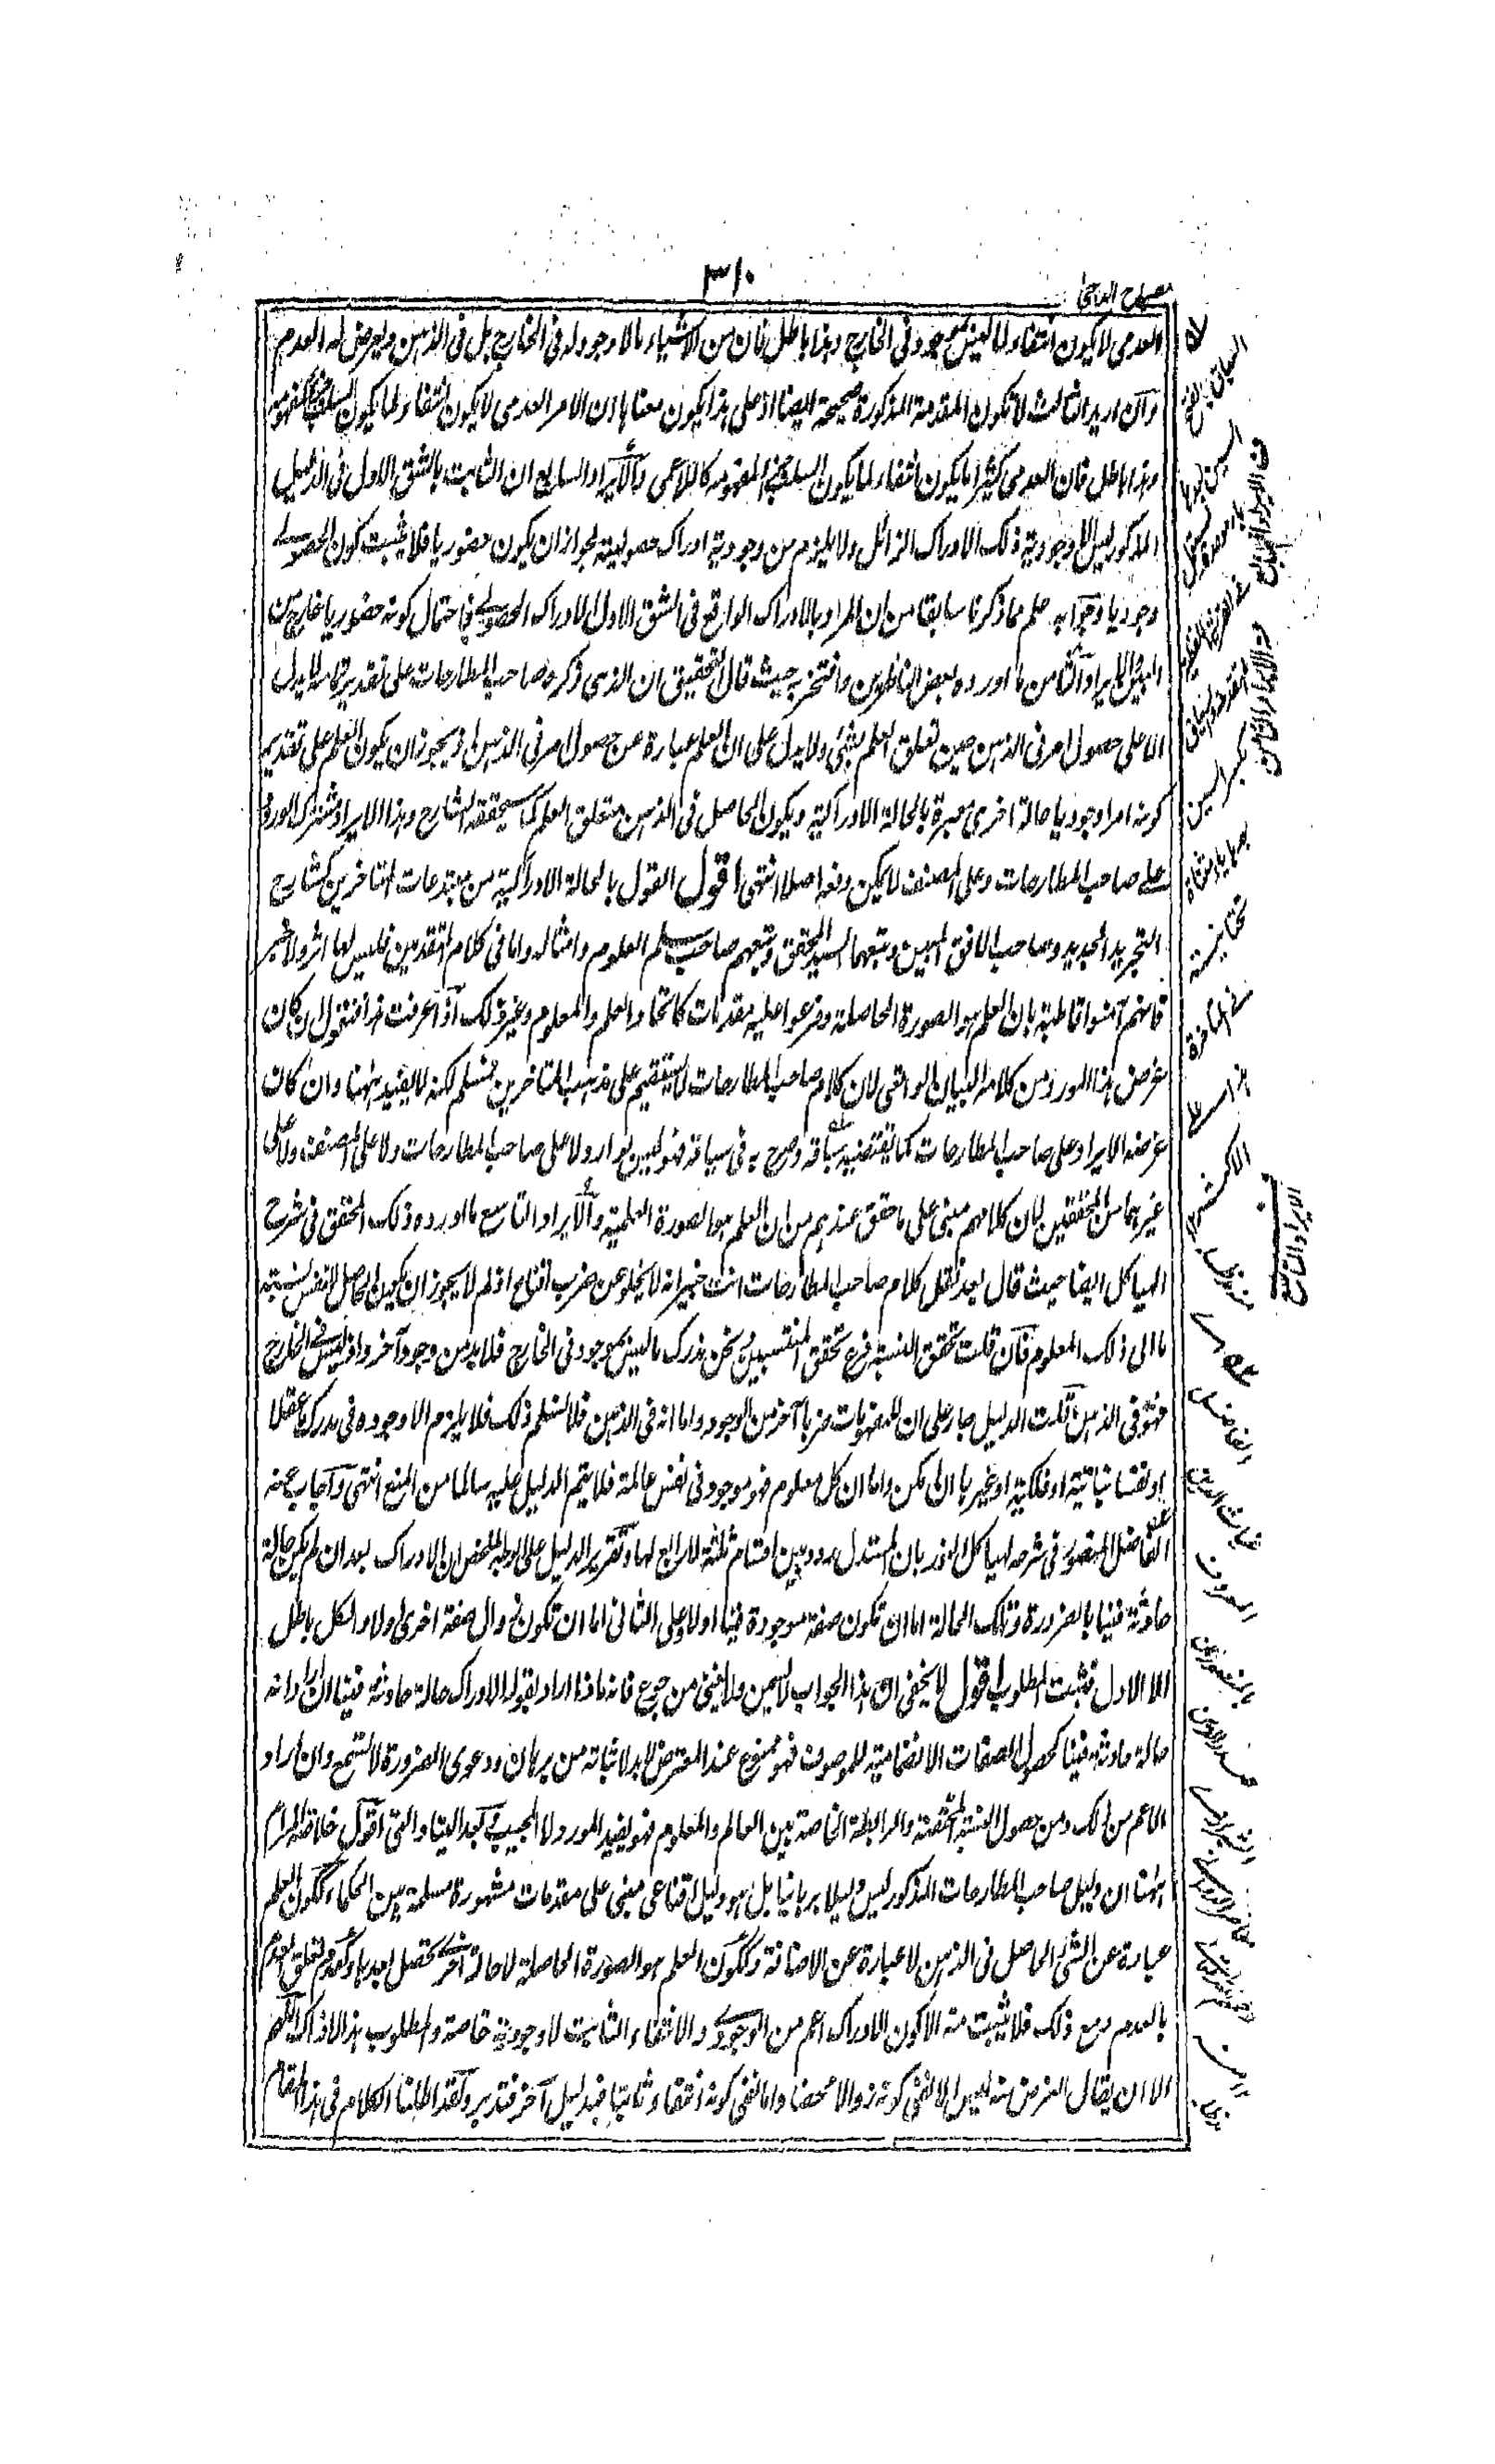 ٣١٠
مصباح الدجى
العدمى لا يكون انتفاء لما ليس بموجود فى الخارج وهذا باطل فان من الاشياء ما لا وجود له فى الخارج بل فى الذهن ويعرض له العدم
وآن اريد الثالث لا تكون المقدمة المذكورة صحيحة ايضا اذ على هذا يكون معناها ان الامر العدمى لا يكون انتفاء لما يكون السلب لمفهومه
وهذا باطل فان العدمى كثيرا ما يكون انتفاء لما يكون السلب لمفهومه كاللاعمى وآلايراد السابع ان الثابت بالشق الاول فى الدليل
المذكور ليس الا وجودية ذلك الادراك الزائل ولا يلزم من وجودية ادراك حصوليته لجواز ان يكون حضوريا فلا يثبت كون الحصولے
وجوديا وجوآبه علم مما ذكرنا سابقا من ان المراد بالادراك الواقع فى الشق الاول الادراك الحصولے فاحتمال كونه حضوريا خارج عن
البين الايراد آلثامن ما اورده بعض الناظرين وافتخر به حيث قال التحقيق ان الذى ذكره صاحب المطارحات على تقدير تمامه لا يدل
الا على حصول امر فى الذهن حين تعلق العلم بشئ ولا يدل على ان العلم عبارة عن حصول امر فى الذهن اذ يجوز ان يكون العلم على تقدير
كونه امرا وجوديا حالة اخرى معبرة بالحالة الادراكية ويكون الحاصل فى الذهن متعلق العلم كما سيحققه الشارح وهذا الايراد مشترك الورود
علے صاحب المطارحات وعلى المصنف لا يمكن دفعه اصلا انتهى اقول القول بالحالة الادراكية من مبتدعات المتاخرين كشارح
التجريد الجديد وصاحب الافق المبين وتبعهما السيد المحقق وتبعهم صاحب سلم العلوم وامثاله واما فى كلام المتقدمين فليس لها اثر ولا خبر
فانهم آمنوا قاطبة بان العلم هو الصورة الحاصلة وفرعوا عليه مقدمات كاتحاد العلم والمعلوم وغير ذلك آذا عرفت هذا فنقول ان كان
غرض هذا المورد من كلامه البيان الواقى لان كلام صاحب المطارحات لا يستقيم على مذهب المتاخرين فمسلم لكنه لا يفيد ههنا وان كان
غرضه الايراد على صاحب المطارحات كما يقتضيه سباقه وصرح به فى سياقه فهو ليس بوارد لا على صاحب المطارحات ولا على المصنف ولا على
غيرهما من المحققين لان كلامهم مبنى على ما حقق عندهم من ان العلم هو الصورة العلمية وآلايراد التاسع ما اورده ذلك المحقق فى شرح
الهياكل ايضا حيث قال بعد نقل كلام صاحب المطارحات انت خبير انه لا يخلو عن ضرب اقناع اذ لم لا يجوز ان يكون الحاصل للنفس نسبته
ما الى ذلك المعلوم فآن قلت تحقق النسبة فرع تحقق المنتسبين ونحن ندرك ما ليس بموجود فى الخارج فلا بد من وجود آخر واذ ليس فى الخارج
فهو فى الذهن قلت الدليل جار على ان للمفهومات ضربا آخر من الوجود واما انه فى الذهن فلا نسلم ذلك فلا يلزم الا وجوده فى مدرك ما عقلا
او نفسا نباتية او فلكية او غيرها ان امكن واما ان كل معلوم فهو موجود فى نفس عالمه فلا يتم الدليل عليه سالما من المنع انتهى وآجاب عنه
الفاضل المنصور فى شرحه لهياكل النور بان المستدل ردد بين اقسام ثلثة لا رابع لها وتقرير الدليل على الوجه الملخص ان الادراك بعد ان لم يكن حالة
حادثة فينا بالضرورة وتلك الحالة اما ان تكون صفة موجودة فينا اولا وعلى الثانى اما ان تكون زوال صفة اخرى اولا والكل باطل
الا الاول فثبت المطلوب اقول لا يخفى ان هذا الجواب لا يسمن ولا يغنى من جوع فانه ماذا اراد بقوله الادراك حالة حادثة فينا ان اراد انه
حالة حادثة فينا كحصول الصفات الانضمامية للموصوف فهو ممنوع عند المعترض لا بد لاثباته من برهان ودعوى الضرورة لا تسمع وان اراد
الاعم من ذلك ومن حصول النسبة المحققة والرابطة الخاصة بين العالم والمعلوم فهو يفيد المورد لا المجيب وبعد اللتيا والتى آقول خلاصة المرام
ههنا ان دليل صاحب المطارحات المذكور ليس دليلا برهانيا بل هو دليل اقناعى مبنى على مقدمات مشهورة مسلمة بين الحكماء ككون العلم
عبارة عن الشئ الحاصل فى الذهن لا عبارة عن الاضافة وككون العلم هو الصورة الحاصلة لا حالة اخرى تحصل بعدها وكعدم تعلق العلم
بالعدم ومع ذلك فلا يثبت منه الا كون الادراك اعم من الوجودى والانتفاء الثابت لا وجودية خاصة والمطلوب هذا لا ذاك اللهم
الا ان يقال الغرض منه ليس الا نفى كونه زوالا محضا واما نفى كونه انتفاء ثابتا فبدليل آخر فتدبر ولقد اطلنا الكلام فى هذا المقام
الايراد التاسع